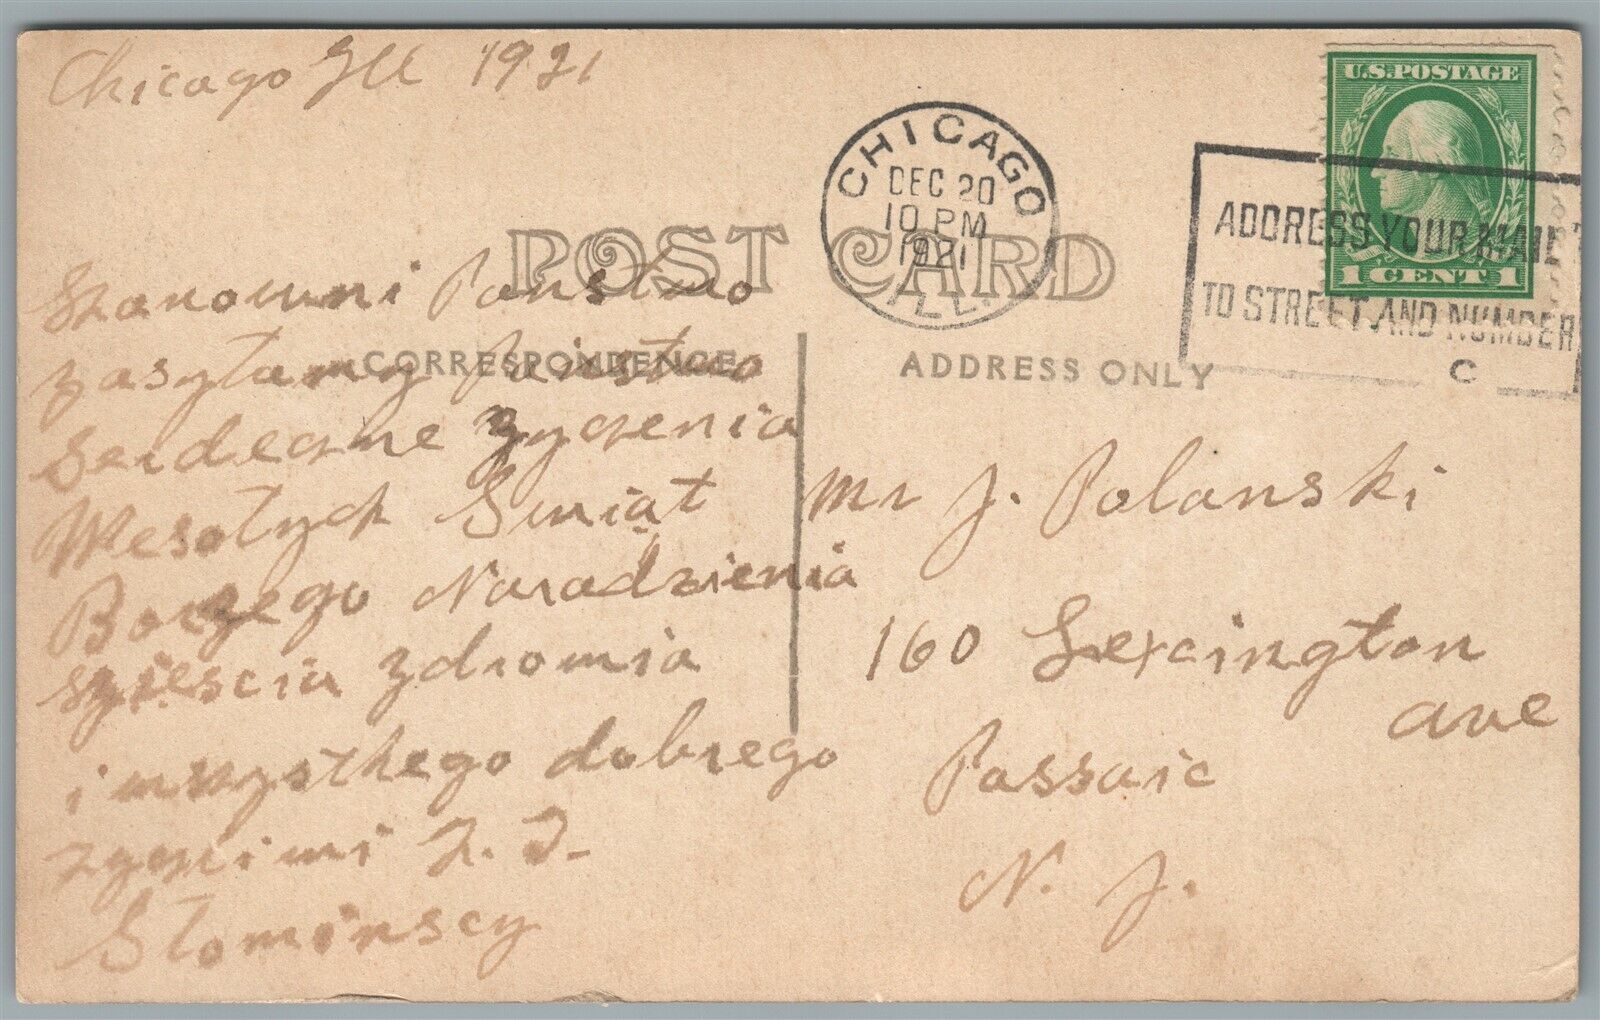 Chicago Ill 1921
U.S. POSTAGE
1 CENT 1
CHICAGO
DEC 20
10 PM
1921
ILL.
ADDRESS YOUR MAIL
TO STREET AND NUMBER
C
POST CARD
CORRESPONDENCE
ADDRESS ONLY
Szanowni Panstwo
zasyłamy Painstwo
Serdeczne zyczenia
Wesołych Swiąt
Borzego Naradzienia
szięscia zdrowia
i wszysthego dobrego
zyczimi
Słominscy
Mr J. Polanski
160 Lexcington
ave
Passaic
N. J.